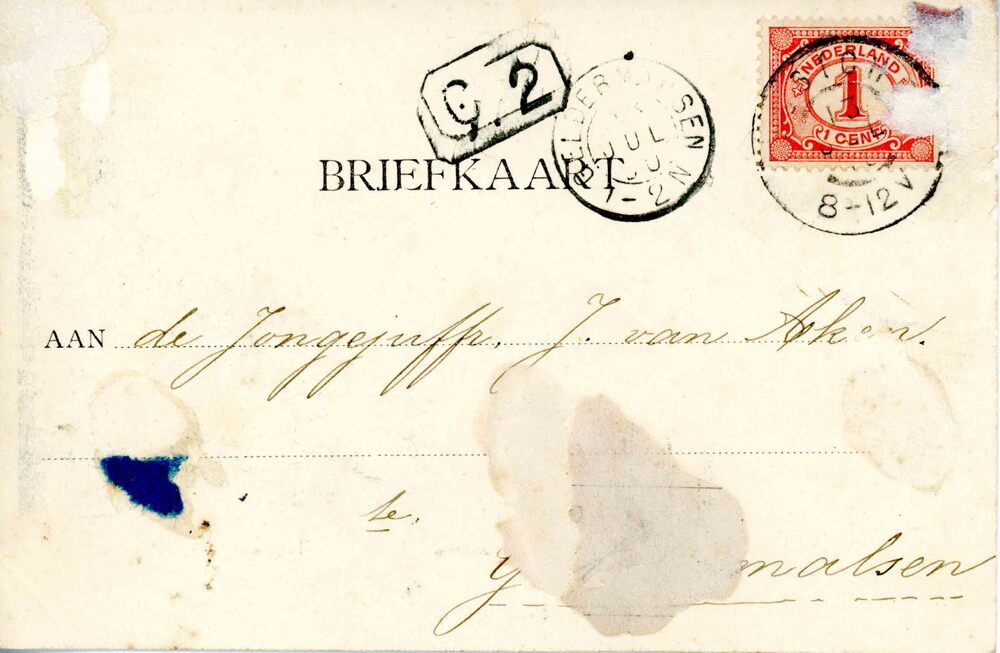 G. 2
GELDERMALSEN
JUL
1-2N
NEDERLAND
1
1 CENT
8-12V
BRIEFKAART
AAN de Jongejuffr. J. van Aken.
te.
G malsen